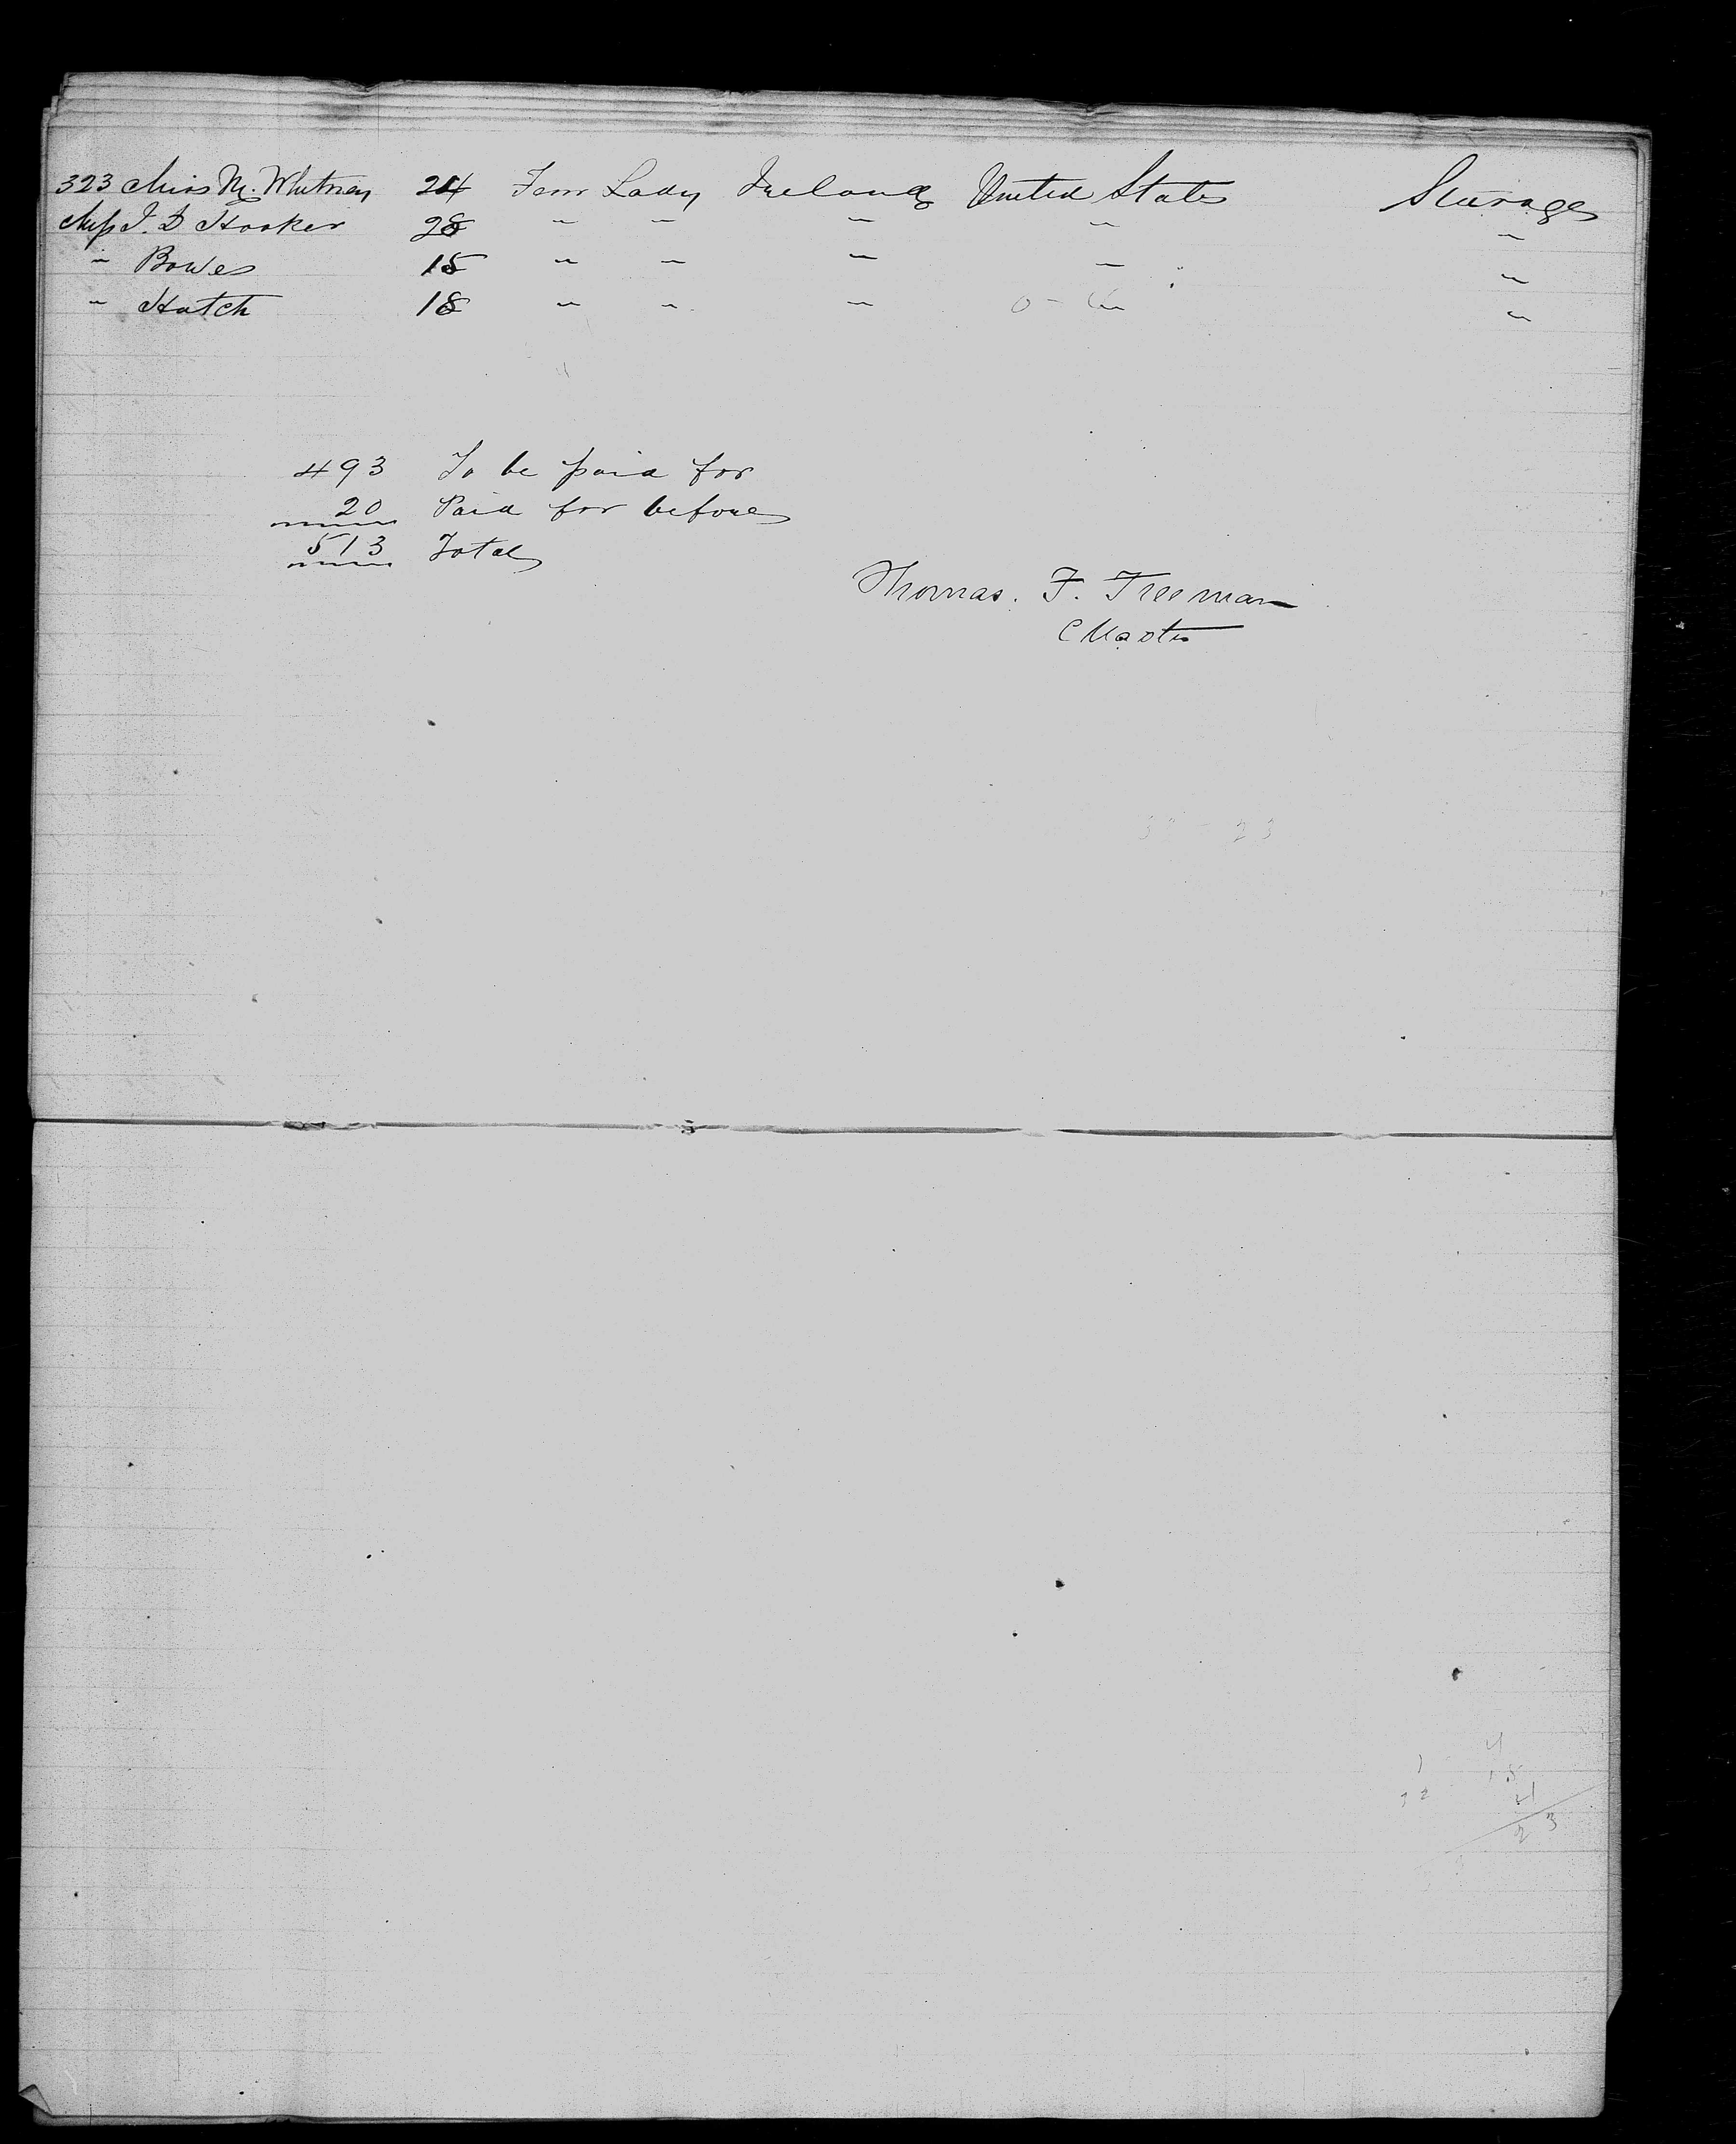 323 Miss M. Whitney 24 Fem Lady Ireland United States Steerage
Miss I. D Hooker 28 " " " " "
" Bowes 15 " " " " "
" Hatch 18 " " " " "
493 To be paid for
20 Paid for before
513 Total
Thomas. F. Freeman
Master
23